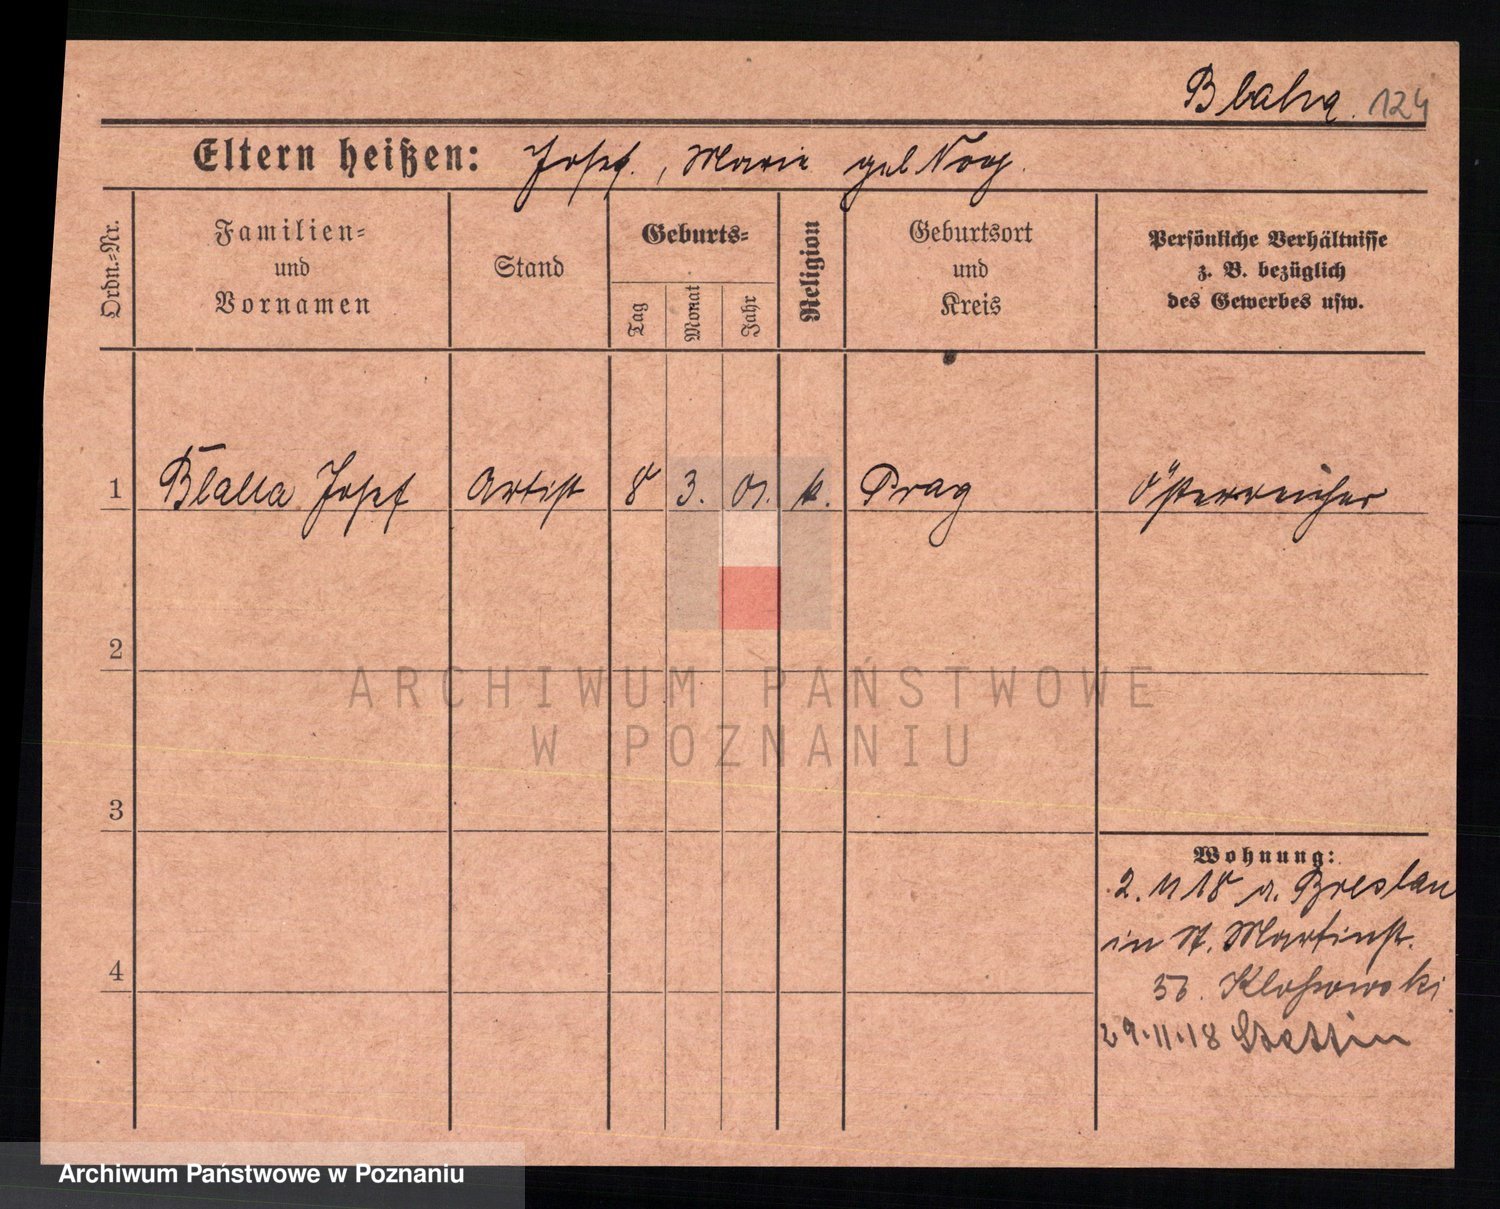 Blaha. 124
Eltern heißen: Josef., Marie geb
Ordn.-Nr.
Familien- und Vornamen
Stand
Geburts-
Tag
Monat
Jahr
Religion
Geburtsort und Kreis
Persönliche Verhältnisse z. B. bezüglich des Gewerbes usw.
1 Josef Artist 8 3. 01. k. Prag Österreicher
2
3
4
Wohnung:
2. 11 18 a. Breslau
in St. Martinstr.
Klossowski
29.11.18 Stettin
ARCHIWUM PAŃSTWOWE
W POZNANIU
Archiwum Państwowe w Poznaniu